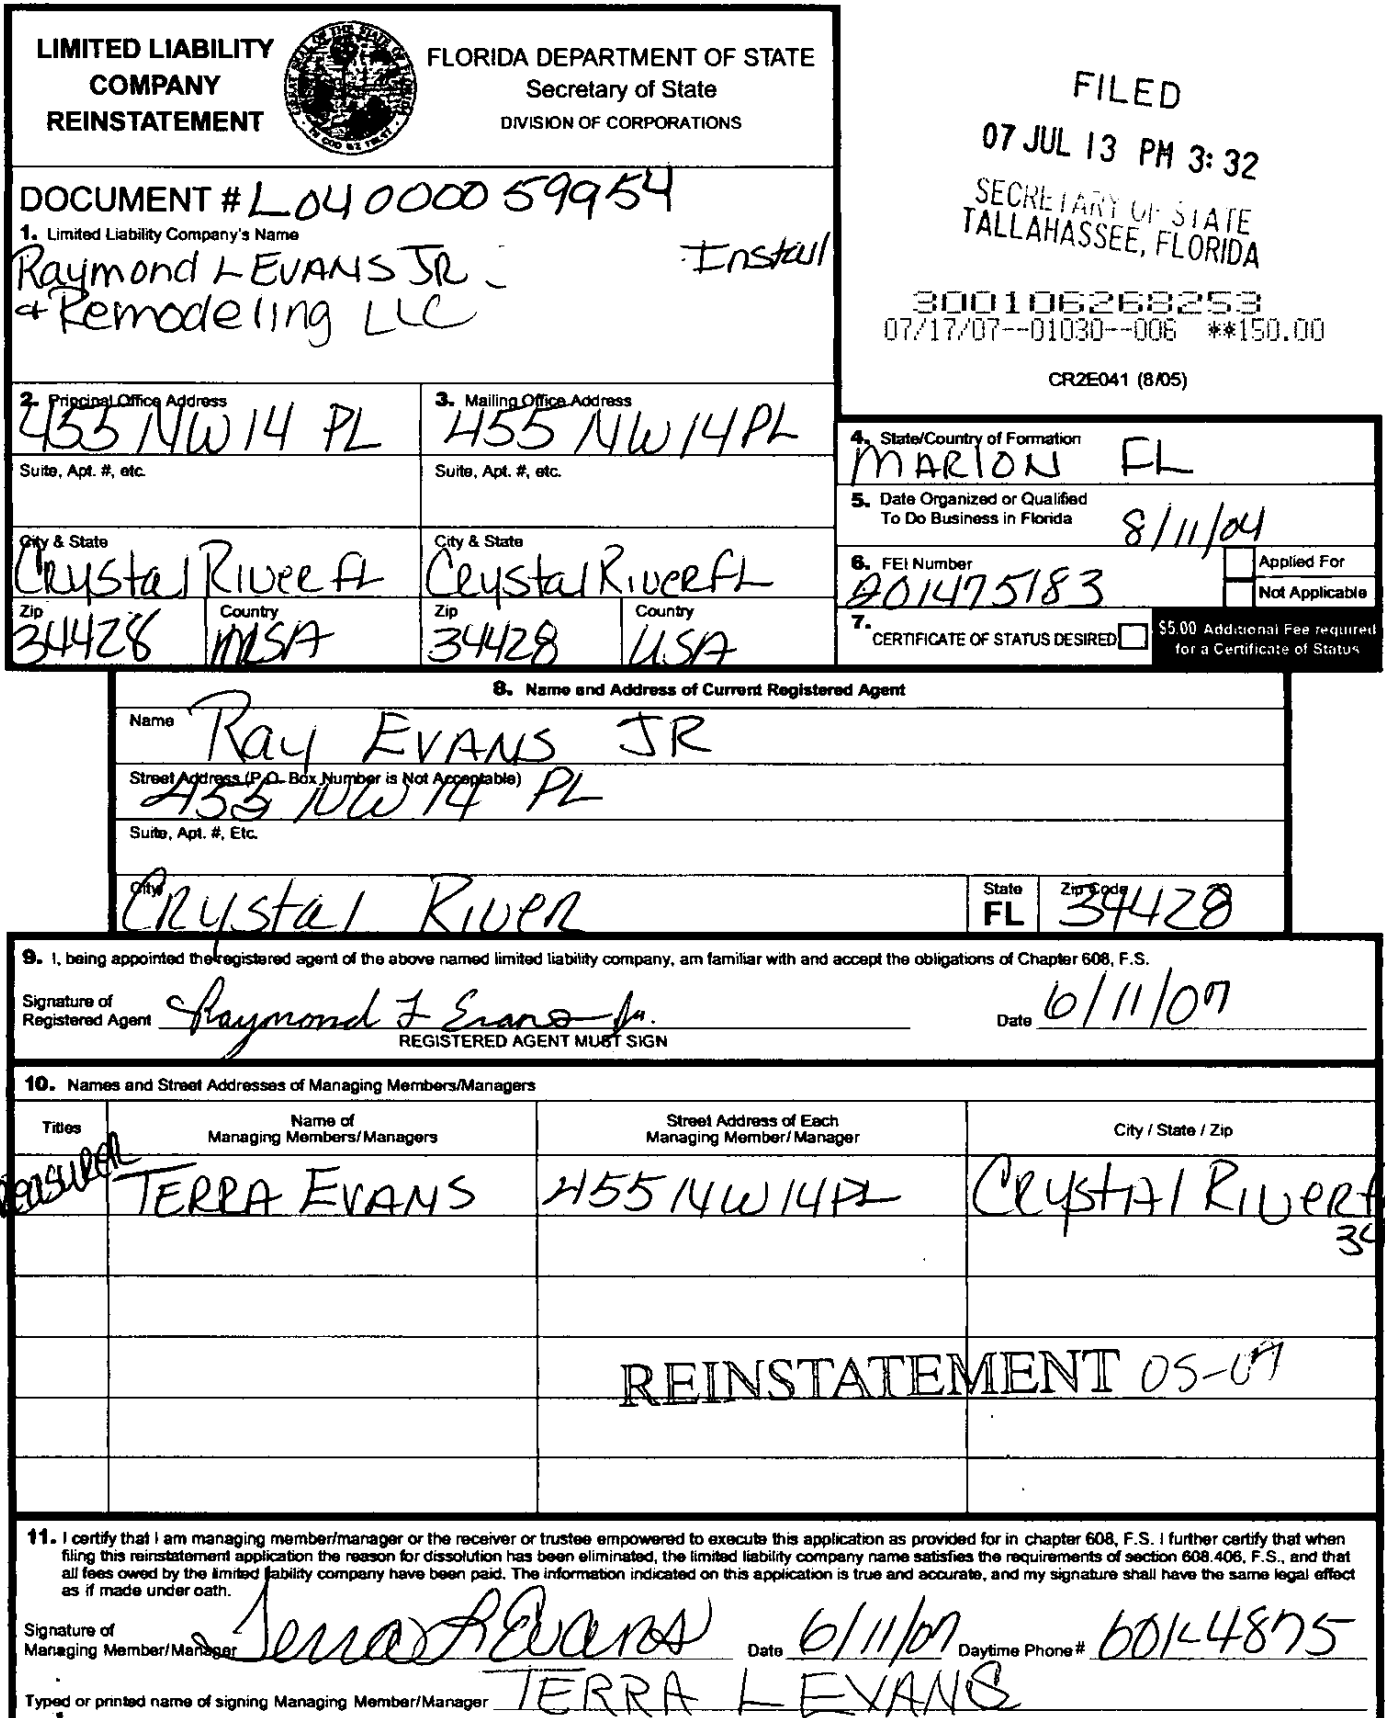 LIMITED LIABILITY
COMPANY
REINSTATEMENT
FLORIDA DEPARTMENT OF STATE
Secretary of State
DIVISION OF CORPORATIONS
FILED
07 JUL 13 PM 3:32
SECRETARY OF STATE
TALLAHASSEE, FLORIDA
300106268253
07/17/07--01030--006 **150.00
CR2E041 (8/05)
DOCUMENT # L04000059954
1. Limited Liability Company's Name
Raymond L EVANS JR. Install
& Remodeling LLC
2. Principal Office Address
455 NW 14 PL
3. Mailing Office Address
455 NW 14 PL
Suite, Apt. #, etc.
Suite, Apt. #, etc.
City & State
Crystal River FL
City & State
Crystal River FL
Zip
34428
Country
USA
Zip
34428
Country
USA
4. State/Country of Formation
MARION FL
5. Date Organized or Qualified
To Do Business in Florida
8/11/04
6. FEI Number
201475183
Applied For
Not Applicable
7. CERTIFICATE OF STATUS DESIRED
$5.00 Additional Fee required
for a Certificate of Status
8. Name and Address of Current Registered Agent
Name Ray EVANS JR
Street Address (P.O. Box Number is Not Acceptable)
455 NW 14 PL
Suite, Apt. #, Etc.
City
Crystal River
State
FL
Zip Code
34428
9. I, being appointed the registered agent of the above named limited liability company, am familiar with and accept the obligations of Chapter 608, F.S.
Signature of
Registered Agent Raymond L Evans Jr.
Date 6/11/07
REGISTERED AGENT MUST SIGN
10. Names and Street Addresses of Managing Members/Managers
Titles
Name of
Managing Members/Managers
Street Address of Each
Managing Member/Manager
City / State / Zip
TERRA EVANS
455 NW 14 PL
Crystal River
34
REINSTATEMENT 05-07
11. I certify that I am managing member/manager or the receiver or trustee empowered to execute this application as provided for in chapter 608, F.S. I further certify that when
filing this reinstatement application the reason for dissolution has been eliminated, the limited liability company name satisfies the requirements of section 608.406, F.S., and that
all fees owed by the limited liability company have been paid. The information indicated on this application is true and accurate, and my signature shall have the same legal effect
as if made under oath.
Signature of
Managing Member/Manager Terra L Evans Date 6/11/07 Daytime Phone # 601-4875
Typed or printed name of signing Managing Member/Manager TERRA L EVANS